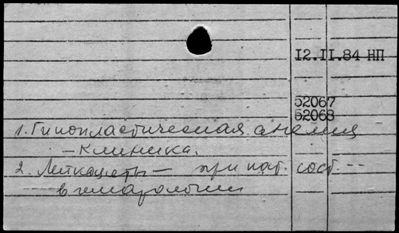 12.II.84 НП
52067
52068
1. Гипопластическая анемия
- Клиника.
2. Лейкоциты - при пат. сост.
в гематологии